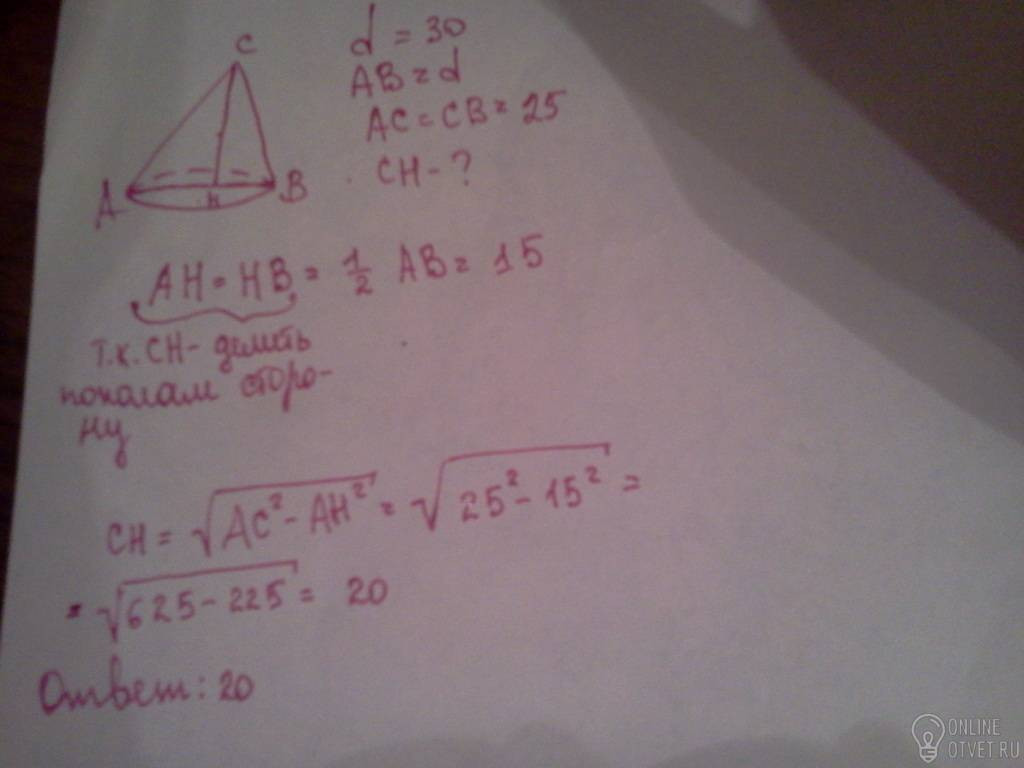 C
A
B
H
d = 30
AB = d
AC = CB = 25
CH - ?
AH = HB = 1/2 AB = 15
т.к. CH - делить
пополам сторо-
ну
CH = √AC² - AH² = √25² - 15² =
= √625 - 225 = 20
Ответ: 20
ONLINE
OTVET.RU